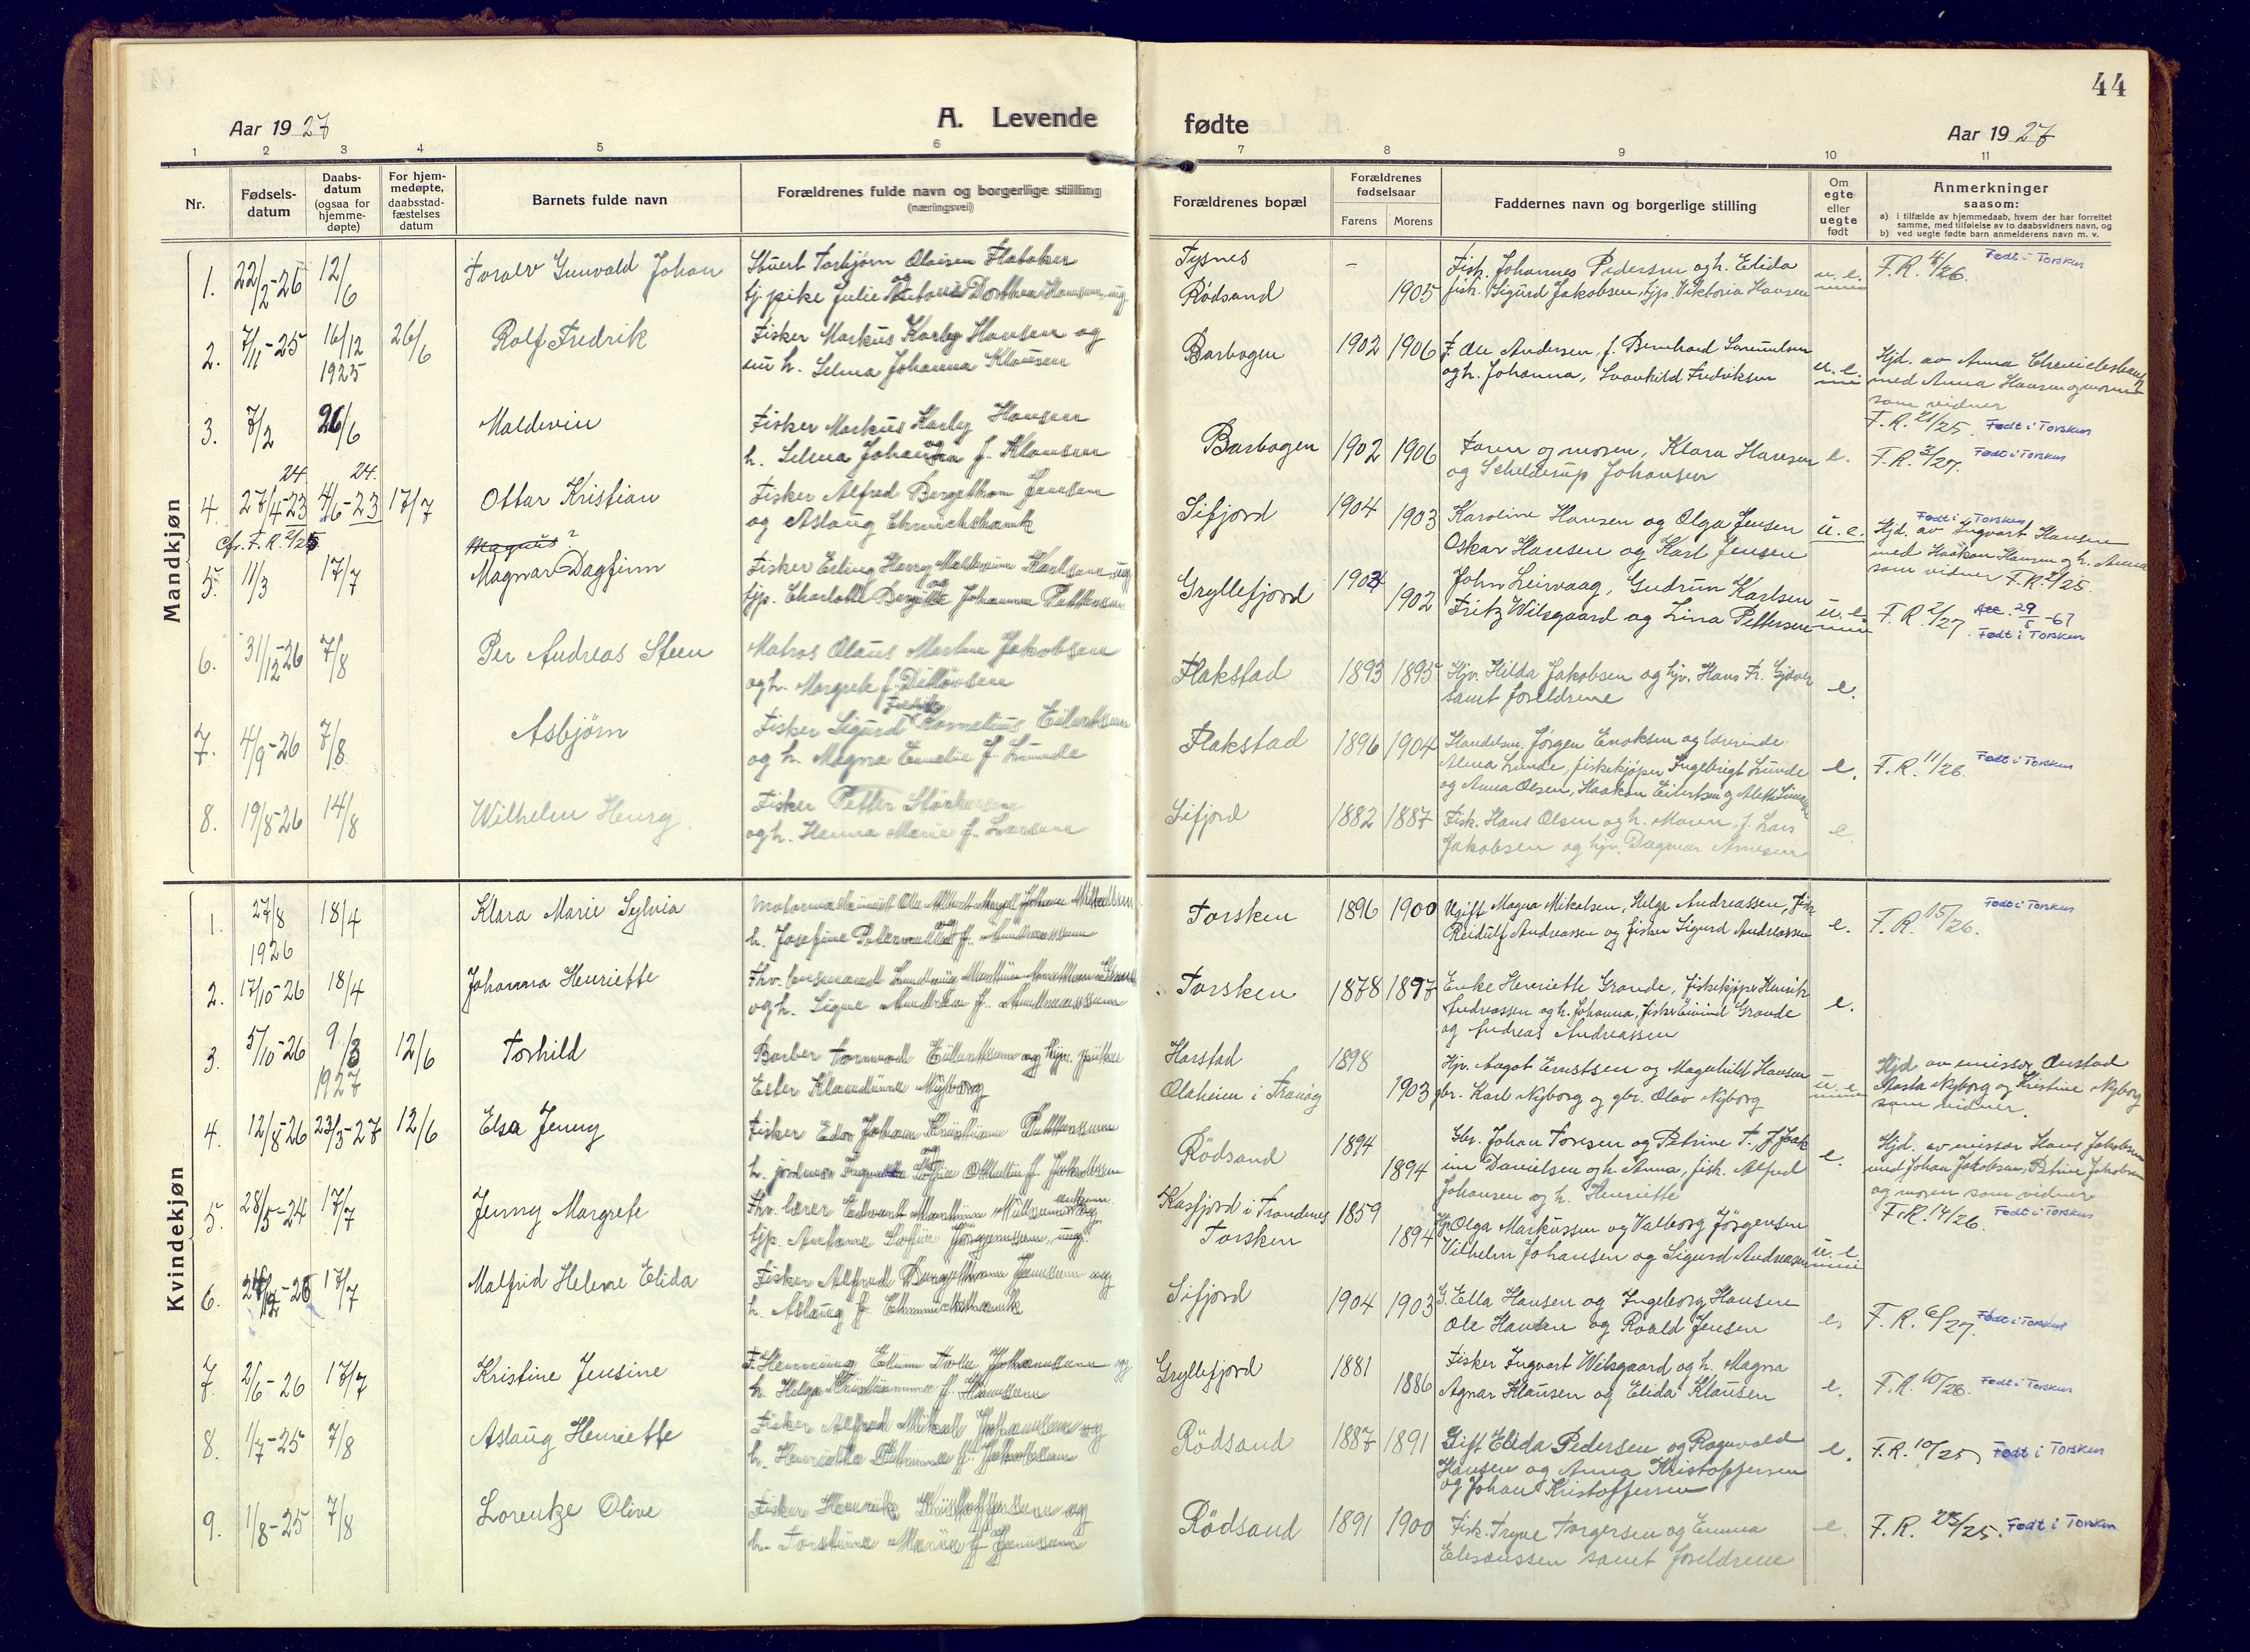 44
Aar 1927
A. Levende
fødte
Aar 1927
1 2 3 4 5 6 7 8 9 10 11
Nr.
Fødsels-
datum
Daabs-
datum
(ogsaa for
hjemme-
døpte)
For hjem-
medøpte,
daabsstad-
fæstelses
datum
Barnets fulde navn
Forældrenes fulde navn og borgerlige stilling
(næringsvei)
Forældrenes bopæl
Forældrenes
fødselsaar
Farens
Morens
Faddernes navn og borgerlige stilling
Om
egte
eller
uegte
født
Anmerkninger
saasom:
a) i tilfælde av hjemmedaab, hvem der har forrettet
samme, med tilføielse av to daabsvidners navn, og
b) ved uegte fødte barn anmelderens navn m. v.
Mandkjøn
1. 22/2-26 12/6 Gunvald Johan
Torbjørn
tj. pike Julie
Tysnes
Rödsand
1905
Fisk. Johannes Pedersen og h. Elida
fisk. Sigurd Jakobsen, tjp. Viktoria Hansen
u. e.
F.R. 4/26. Født i Torsken
2. 7/11-25 16/12 1925 26/6 Rolf Fredrik
Fisker Markus Karley Hansen og
h. Selma Johanna Klausen
Barbogen
1902 1906
f. Ole Andersen, f. Bernhard
og h. Johanna, Svanhild Fredriksen
u. e.
Hjd. av Anna
med Anna Hansen og moren
som vidner
F.R. 21/25. Født i Torsken
3. 7/2 26/6 Maldevin
Fisker Markus Karley Hansen
h. Selma Johanna f. Klausen
Barbogen
1902 1906
Faren og moren, Klara Hansen
og Schelderup Johansen
e.
F.R. 3/27. Født i Torsken
24. 24.
4. 27/4-23 4/6-23 17/7 Ottar Kristian
Cfr. F.R. 2/25
Fisker Alfred Bergethon Jensen
og Aslaug
Sifjord
1904 1903
Karoline Hansen og Olga Jensen
Oskar Hansen og Karl Jensen
u. e.
Født i Torsken
Hjd. av Ingvart Hansen
med Haakon Hansen og h. Anna
som vidner F.R. 2/25.
Magnus?
5. 11/3 17/7 Magnar Dagfinn
Fisker Erling Harry Karlsen, ug.
tjp. Charlotte Bergitte Johanna Pettersen
Gryllefjord
1904 1902
John Leirvaag, Gudrun Karlsen
Fritz Wilsgaard og Lina Pettersen
u. e.
F.R. 2/27. Att. 29/5-61
Født i Torsken
6. 31/12-26 7/8 Per Andreas Steen
Matros Olaus Martin Jakobsen
og h. Margrete f. Ditlövsen
Flakstad
1893 1895
Hjv. Hilda Jakobsen og hjv. Hans Fr. Gjöver
samt foreldrene
e.
7. 4/9-26 7/8 Asbjörn
Fredrik
Fisker Sigurd Kornelius Eilertsen
og h. Magna Emelie f. Lunde
Flakstad
1896 1904
Handelsm. Jörgen Enoksen og lærerinde
Alma Lunde, fiskekjöper Ingebrigt Lunde
og Anna Olsen, Haakon Eilertsen og
e.
F.R. 11/26. Født i Torsken
8. 19/8-26 14/8 Wilhelm Henry
Fisker Petter
og h. Hanna Marie f. Larsen
Sifjord
1882 1887
Fisk. Hans Olsen og h. Maren, f. Lars
Jakobsen og hjv. Dagmar Arnesen
e.
Kvindekjøn
1. 27/8 1926 18/4 Klara Marie Sylvia
h. Josefine Petermette f. Andreassen
Torsken
1896 1900
Ugift Magna Mikalsen, Helga Andreassen, Fisk.
Reidulf Andreassen og fisker Sigurd Andreassen
e.
F.R. 15/26. Født i Torsken
2. 17/10-26 18/4 Johanna Henriette
og h. Signe Andrea f. Andreassen
Torsken
1878 1897
Enke Henriette Grande, fiskekjöper Henrik
Andreassen og h. Johanna, fisker Eivind Grande
og Andreas Andreassen
e.
3. 5/10-26 9/3 1927 12/6 Torhild
Barber Tormod Eilertsen og hjv. pike
Ester Klaudine Nyborg
Harstad
Olaheim i Tranöy
1898 1903
Hjv. Aagot Ernstsen og Magnhild Hansen
gbr. Karl Nyborg og gbr. Olav Nyborg
u. e.
Hjd. av emissær Aarstad
Marta Nyborg og Kristine Nyborg
som vidner.
4. 12/8-26 23/3-27 12/6 Elsa Jenny
Fisker Edor Johan Kristian Pettersen
h. jordmor Sofie Ottelie f. Jakobsen
Rödsand
1894 1894
Gbr. Johan Toresen og Petrine T., f. Joak
im Danielsen og h. Anna, fisk. Alfred
Johansen og h. Henriette
e.
Hjd. av emissær Hans Jakobsen
med Johan Jakobsen, Petrine Jakobsen
og moren som vidner
F.R. 14/26. Født i Torsken
5. 28/5-24 17/7 Jenny Margrete
Fhv. lærer Edvard Martin Nilsen, enkem. og
tjp. Antone Sofie Jörgensen, ug.
Kasfjord i Trondenes
Torsken
1859 1894
Hjv. Olga Markussen og Valborg Jörgensen
Vilhelm Johansen og Sigurd Andreassen
u. e.
6. 17/7 Malfrid Helene Elida
Fisker Alfred Bergethon Jensen og
h. Aslaug f.
Sifjord
1904 1903
G. Ella Hansen og Ingeborg Hansen
Ole Hansen og Roald Jensen
e.
F.R. 6/27. Født i Torsken
7. 2/6-26 17/7 Kristine Jensine
F. Henning Johansen og
h. Helga Kristianna f. Hansen
Gryllefjord
1881 1886
Fisker Ingvart Wilsgaard og h. Magna
Agnar Klausen og Elida Klausen
e.
F.R. 10/26. Født i Torsken
8. 1/7-25 7/8 Aslaug Henriette
Fisker Alfred Mikal Johansen og
h. Henriette Petrine f. Jakobsen
Rödsand
1887 1891
Gift Elida Pedersen og Ragnvald
Hansen og Anna Kristoffersen
og Johan Kristoffersen
e.
F.R. 10/25, Født i Torsken
9. 1/8-25 7/8 Lorentze Olive
Fisker Henrik Kristoffersen og
h. Torstine Marie f. Jensen
Rödsand
1891 1900
Fisk. Trygve Torgersen og Emma
Eliseussen samt foreldrene
e.
F.R. 25/25. Født i Torsken